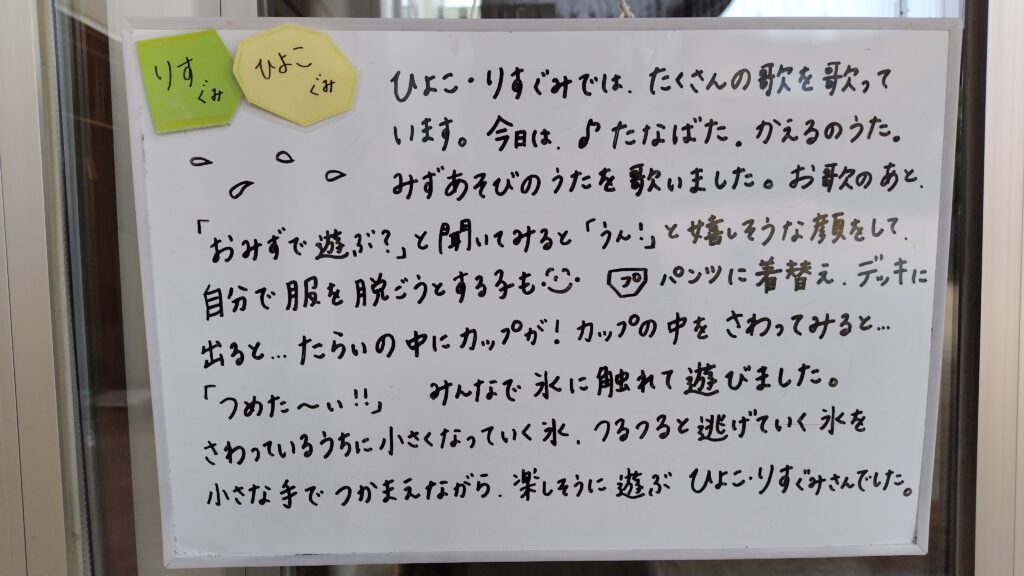 りす
ぐみ
ひよこ
ぐみ
ひよこ・りすぐみでは、たくさんの歌を歌って
います。今日は、♪たなばた、かえるのうた。
みずあそびのうたを歌いました。お歌のあと、
「おみずで遊ぶ?」と聞いてみると「うん!」と嬉しそうな顔をして、
自分で服を脱ごうとする子も プ パンツに着替え、デッキに
出ると…たらいの中にカップが!カップの中をさわってみると…
「つめた〜ぃ!!」 みんなで氷に触れて遊びました。
さわっているうちに小さくなっていく氷、つるつると逃げていく氷を
小さな手でつかまえながら、楽しそうに遊ぶ ひよこ・りすぐみさんでした。